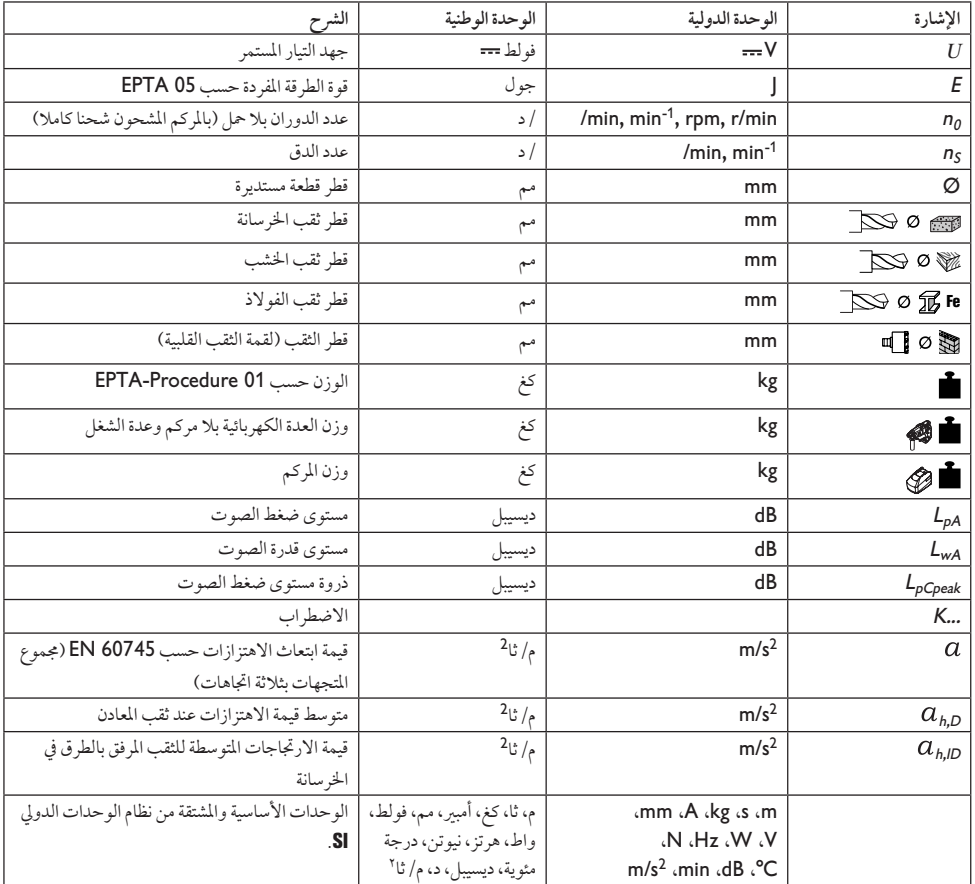 الإشارة الوحدة الدولية الوحدة الوطنية الشرح
U V⎓ فولط ⎓ جهد التيار المستمر
E J جول قوة الطرقة المفردة حسب EPTA 05
n0 /min, min-1, rpm, r/min /د عدد الدوران بلا حمل (بالمركم المشحون شحنا كاملا)
nS /min, min-1 /د عدد الدق
Ø mm مم قطر قطعة مستديرة
Ø mm مم قطر ثقب الخرسانة
Ø mm مم قطر ثقب الخشب
Fe Ø mm مم قطر ثقب الفولاذ
Ø mm مم قطر الثقب (لقمة الثقب القلبية)
kg كغ الوزن حسب EPTA-Procedure 01
kg كغ وزن العدة الكهربائية بلا مركم وعدة الشغل
kg كغ وزن المركم
LpA dB ديسيبل مستوى ضغط الصوت
LwA dB ديسيبل مستوى قدرة الصوت
LpCpeak dB ديسيبل ذروة مستوى ضغط الصوت
K... الاضطراب
a m/s2 م/ثا2 قيمة ابتعاث الاهتزازات حسب EN 60745 (مجموع
المتجهات بثلاثة اتجاهات)
ah,D m/s2 م/ثا2 متوسط قيمة الاهتزازات عند ثقب المعادن
ah,ID m/s2 م/ثا2 قيمة الارتجاجات المتوسطة للثقب المرفق بالطرق في
الخرسانة
m، s، kg، A، mm، م، ثا، كغ، أمبير، مم، فولط، الوحدات الأساسية والمشتقة من نظام الوحدات الدولي
V، W، Hz، N، واط، هرتز، نيوتن، درجة SI.
°C، dB، min، m/s2 مئوية، ديسيبل، د، م/ثا٢